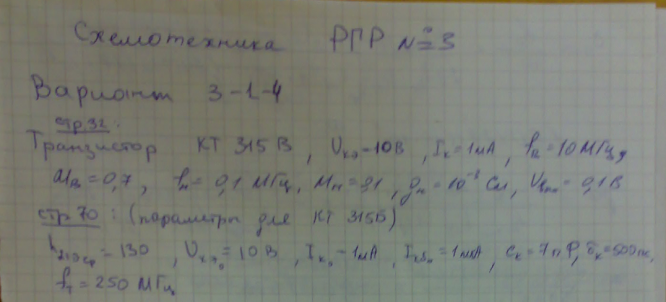 Схемотехника РГР №3
Вариант 3-1-4
стр 32.
Транзистор КТ 315 В, Uкэ=10В, Iк=1мА, fв=10 МГц,
Мв=0,7, fн=0,1 МГц, Мн=0,1, gн=10⁻³ См, Uвых=0,1В
стр 70: (параметры для КТ 315В)
h21эср=130, Uкэ₀=10В, Iк₀=1мА, =1мкА, Cк=7пФ, τк=500пс,
fт=250 МГц